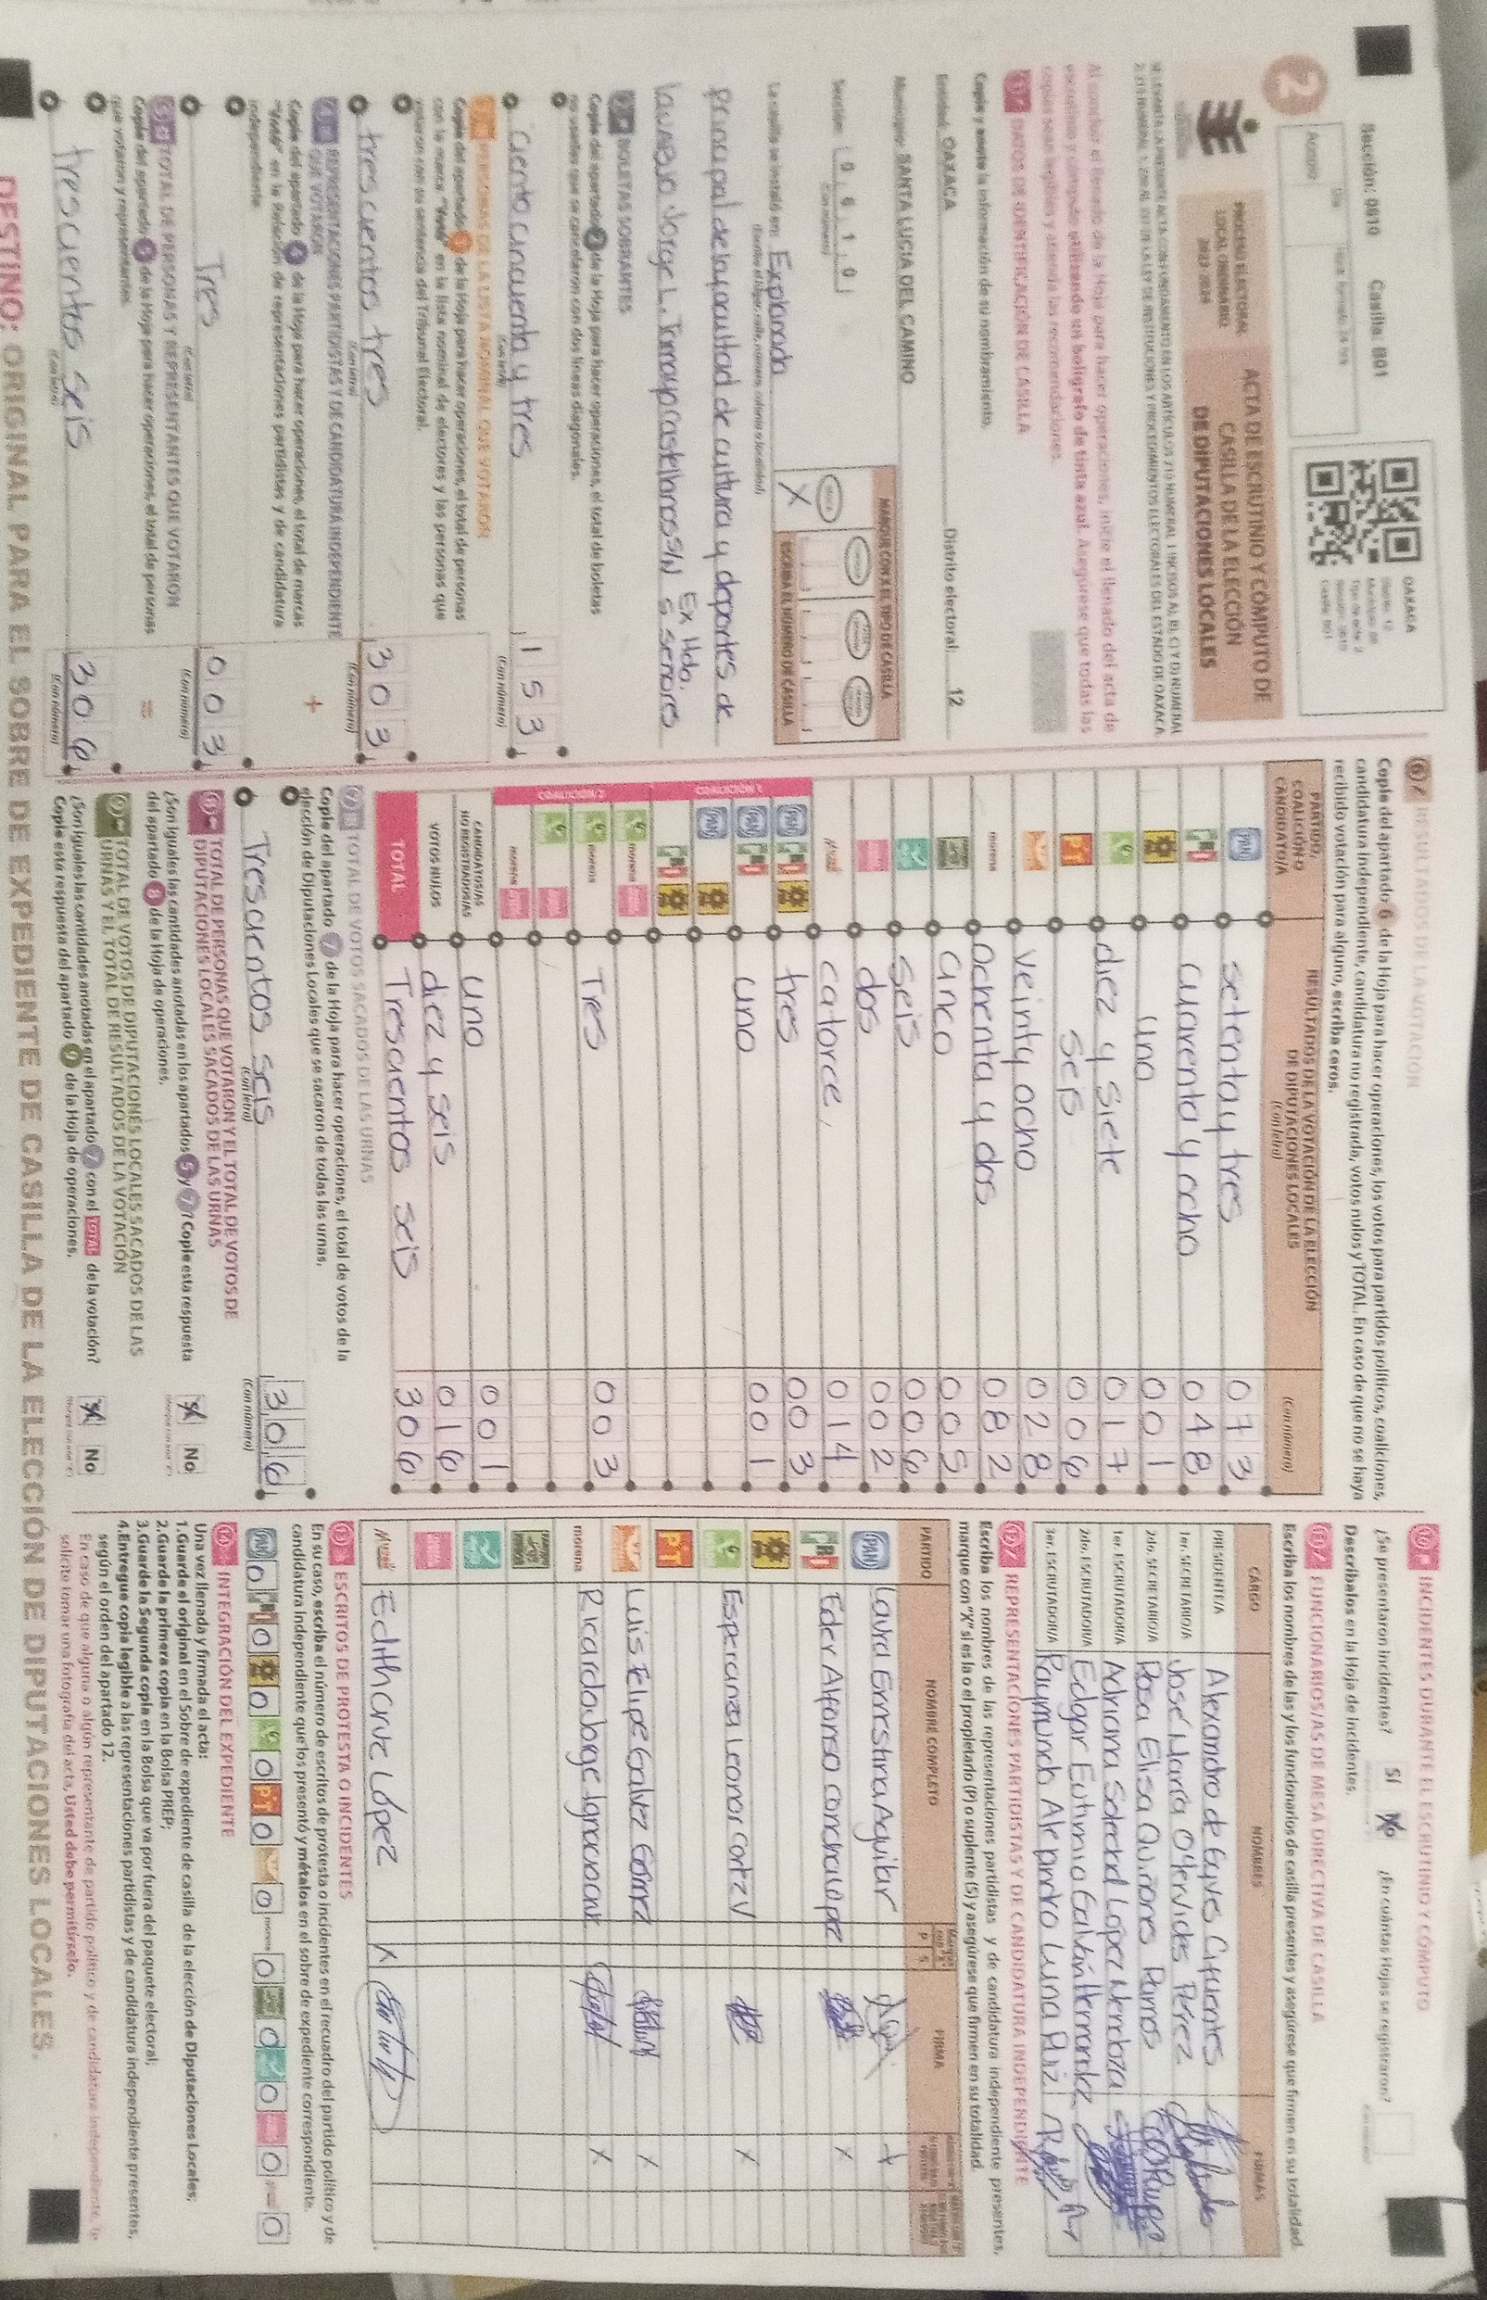 Sección: 0610 Casilla: B01
OAXACA
2
PROCESO ELECTORAL
LOCAL ORDINARIO
2023-2024
ACTA DE ESCRUTINIO Y CÓMPUTO DE
CASILLA DE LA ELECCIÓN
DE DIPUTACIONES LOCALES
Al concluir el llenado de la Hoja para hacer operaciones, inicie el llenado del acta de
escrutinio y cómputo utilizando un bolígrafo de tinta azul. Asegúrese que todas las
copias sean legibles y atienda las recomendaciones.
DATOS DE IDENTIFICACIÓN DE CASILLA
Copie y anote la información de su nombramiento.
Entidad: OAXACA Distrito electoral: 12
Municipio: SANTA LUCIA DEL CAMINO
Sección: 0 6 1 0
(Con número)
MARQUE CON X EL TIPO DE CASILLA
X
ESCRIBA EL NÚMERO DE CASILLA
La casilla se instaló en: Explanada
(Escriba el lugar, calle, número, colonia o localidad)
principal de la facultad de cultura y deportes de
la UABJO Jorge L. Tamayo Castellanos S/N Ex Hda. 5 señores
BOLETAS SOBRANTES
Copie del apartado 2 de la Hoja para hacer operaciones, el total de boletas
no usadas que se cancelaron con dos líneas diagonales.
ciento cincuenta y tres 1 5 3
(Con letra) (Con número)
PERSONAS DE LA LISTA NOMINAL QUE VOTARON
Copie del apartado 3 de la Hoja para hacer operaciones, el total de personas
con la marca "Votó" en la lista nominal de electores y las personas que
votaron con su sentencia del Tribunal Electoral.
trescientos tres 3 0 3
(Con letra) (Con número)
REPRESENTACIONES PARTIDISTAS Y DE CANDIDATURA INDEPENDIENTE
QUE VOTARON
Copie del apartado 4 de la Hoja para hacer operaciones, el total de marcas
"Votó" en la Relación de representaciones partidistas y de candidatura
independiente.
+
Tres 0 0 3
(Con letra) (Con número)
TOTAL DE PERSONAS Y REPRESENTANTES QUE VOTARON
Copie del apartado 5 de la Hoja para hacer operaciones, el total de personas
que votaron y representantes.
=
trescientos seis 3 0 6
(Con letra) (Con número)
6 RESULTADOS DE LA VOTACIÓN
Copie del apartado 6 de la Hoja para hacer operaciones, los votos para partidos políticos, coaliciones,
candidatura independiente, candidatura no registrada, votos nulos y TOTAL. En caso de que no se haya
recibido votación para alguno, escriba ceros.
PARTIDO, COALICIÓN O CANDIDATO/A
RESULTADOS DE LA VOTACIÓN DE LA ELECCIÓN
DE DIPUTACIONES LOCALES
(Con letra) (Con número)
PAN setenta y tres 0 7 3
PRI cuarenta y ocho 0 4 8
una 0 0 1
diez y siete 0 1 7
PT seis 0 0 6
veinty ocho 0 2 8
morena ochenta y dos 0 8 2
cinco 0 0 5
seis 0 0 6
dos 0 0 2
catorce, 0 1 4
COALICIÓN 1
PAN PRI tres 0 0 3
PAN PRI uno 0 0 1
PAN
PRI
COALICIÓN 2
morena
morena Tres 0 0 3
morena
CANDIDATOS/AS
NO REGISTRADOS/AS uno 0 0 1
VOTOS NULOS diez y seis 0 1 6
TOTAL Trescientos seis 3 0 6
7 TOTAL DE VOTOS SACADOS DE LAS URNAS
Copie del apartado 7 de la Hoja para hacer operaciones, el total de votos de la
elección de Diputaciones Locales que se sacaron de todas las urnas.
Trescientos seis 3 0 6
(Con letra) (Con número)
8 TOTAL DE PERSONAS QUE VOTARON Y EL TOTAL DE VOTOS DE
DIPUTACIONES LOCALES SACADOS DE LAS URNAS
¿Son iguales las cantidades anotadas en los apartados 5 y 7? Copie esta respuesta
del apartado 8 de la Hoja de operaciones.
No
9 TOTAL DE VOTOS DE DIPUTACIONES LOCALES SACADOS DE LAS
URNAS Y EL TOTAL DE RESULTADOS DE LA VOTACIÓN
¿Son iguales las cantidades anotadas en el apartado 7 con el TOTAL de la votación?
Copie esta respuesta del apartado 9 de la Hoja de operaciones.
No
10 INCIDENTES DURANTE EL ESCRUTINIO Y CÓMPUTO
¿Se presentaron incidentes? Sí No ¿En cuántas Hojas se registraron?
Descríbalos en la Hoja de Incidentes.
11 FUNCIONARIOS/AS DE MESA DIRECTIVA DE CASILLA
Escriba los nombres de las y los funcionarios de casilla presentes y asegúrese que firmen en su totalidad.
CARGO NOMBRES FIRMAS
PRESIDENTE/A Alexandro de Eguves Cifuentes
1er. SECRETARIO/A José María Oliervides Pérez
2do. SECRETARIO/A Rosa Elisa Quiñones Ramos
1er. ESCRUTADOR/A Adriana Soledad López Mendoza
2do. ESCRUTADOR/A Edgar Eutimio Galván Hernández
3er. ESCRUTADOR/A Raymundo Alejandro Luna Ruiz
12 REPRESENTACIONES PARTIDISTAS Y DE CANDIDATURA INDEPENDIENTE
Escriba los nombres de las representaciones partidistas y de candidatura independiente presentes,
marque con "X" si es la o el propietario (P) o suplente (S) y asegúrese que firmen en su totalidad.
PARTIDO NOMBRE COMPLETO P S FIRMA
PAN Laura Ernestina Aguilar X
PRI Eder Alfonso Concha López X
Esperanza Leonor Cortez V X
PT
Luis Felipe Galvez Gómez X
morena Ricardo Jorge Ignacio Cruz X
Edith Cruz López X
13 ESCRITOS DE PROTESTA O INCIDENTES
En su caso, escriba el número de escritos de protesta o incidentes en el recuadro del partido político y de
candidatura independiente que los presentó y métalos en el sobre de expediente correspondiente.
PAN 0 PRI 0 0 0 PT 0 0 morena 0 0 0 0 0
14 INTEGRACIÓN DEL EXPEDIENTE
Una vez llenada y firmada el acta:
1.Guarde el original en el Sobre de expediente de casilla de la elección de Diputaciones Locales;
2.Guarde la primera copia en la Bolsa PREP;
3.Guarde la Segunda copia en la Bolsa que va por fuera del paquete electoral;
4.Entregue copia legible a las representaciones partidistas y de candidatura independiente presentes,
según el orden del apartado 12.
En caso de que alguna o algún representante de partido político y de candidatura independiente, le
solicite tomar una fotografía del acta, Usted debe permitírselo.
DESTINO: ORIGINAL PARA EL SOBRE DE EXPEDIENTE DE CASILLA DE LA ELECCIÓN DE DIPUTACIONES LOCALES.